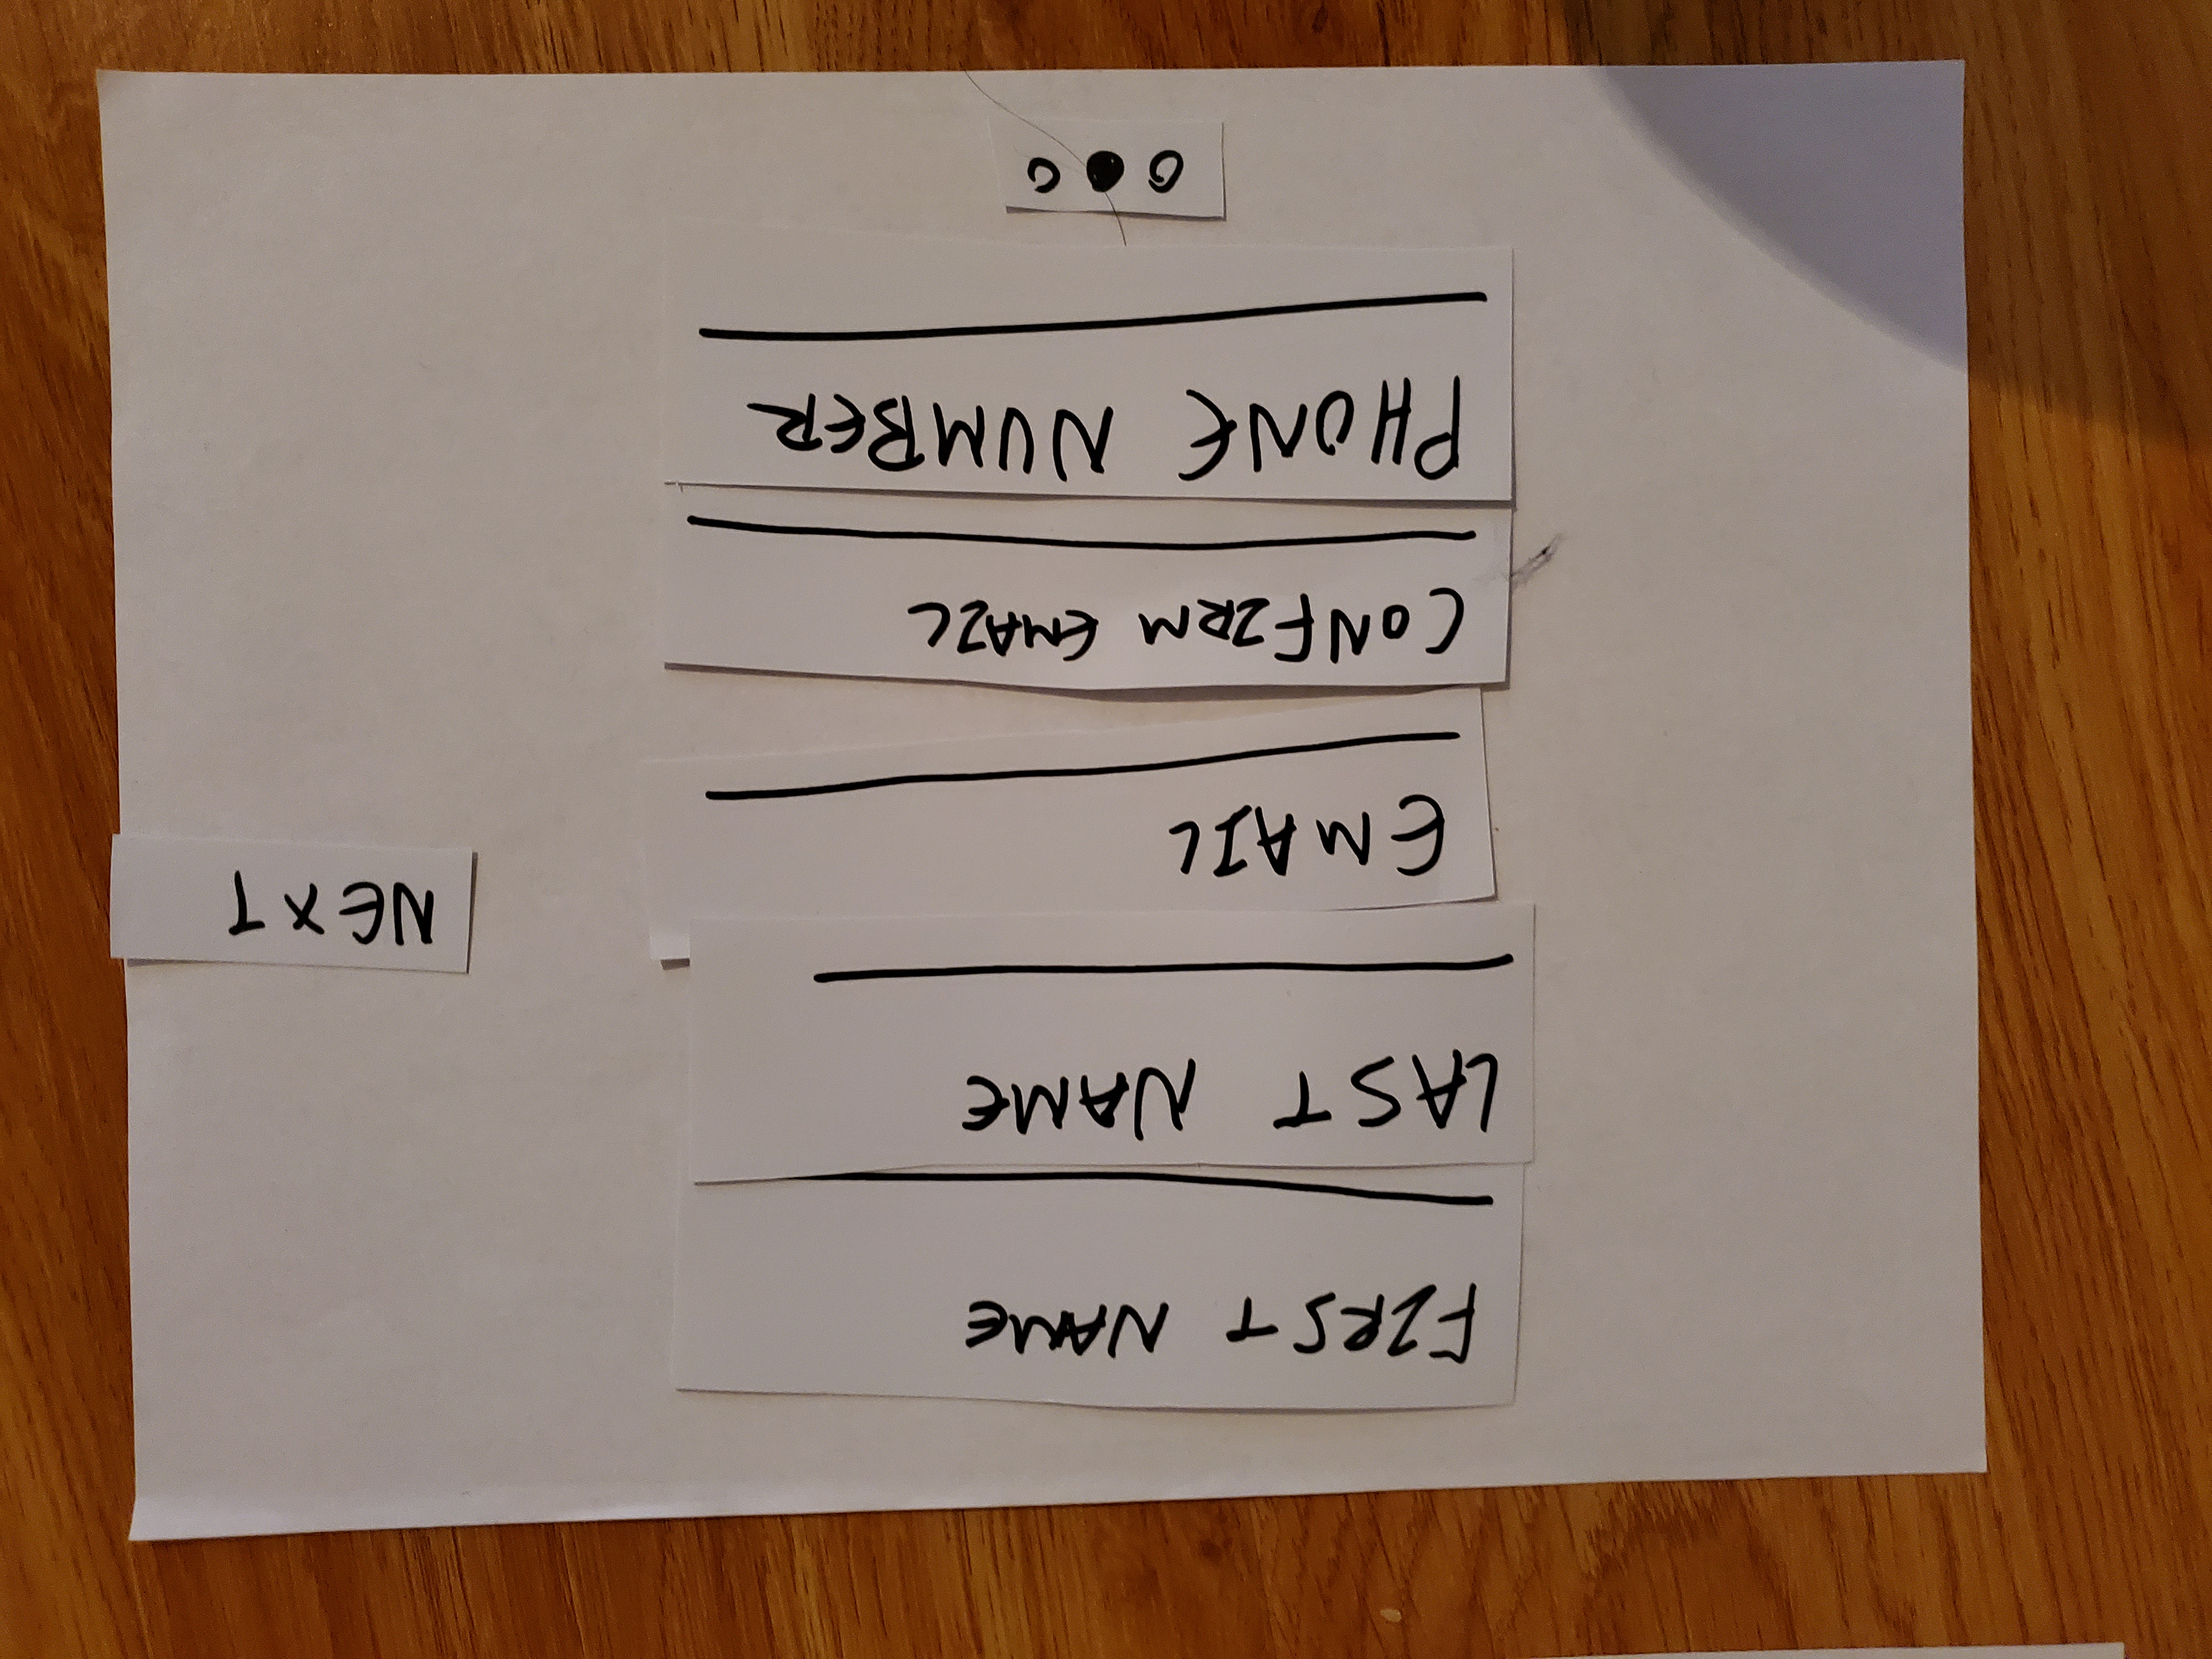 FIRST NAME
LAST NAME
EMAIL
CONFIRM EMAIL
PHONE NUMBER
NEXT